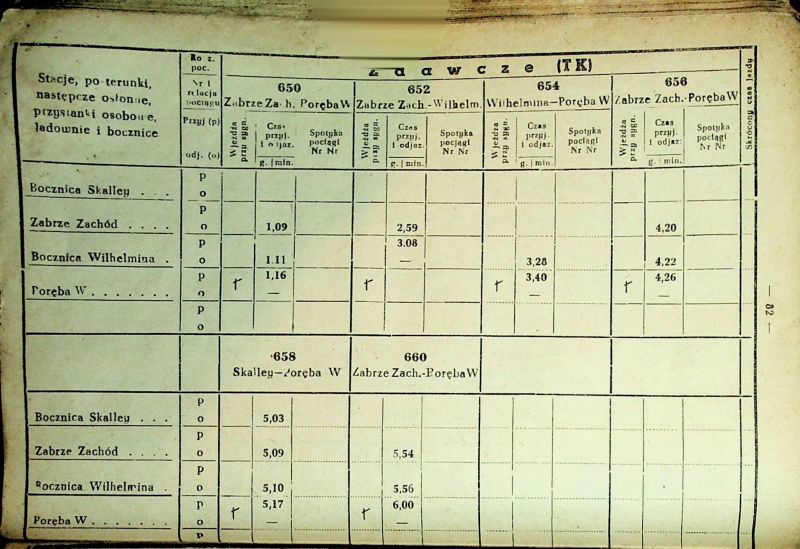 Zdawcze (TK)
Stacje, posterunki,
następcze osłonne,
przystanki osobowe,
ładownie i bocznice
Ro z.
poc.
Nr i
relacja
pociągu
Przyj (p)
odj. (o)
650 652 654 656
Zabrze Zach. Poręba W Zabrze Zach.-Wilhelm. Wilhelmina—Poręba W Zabrze Zach.-Poręba W
Wjeżdża przy sygn. Czas przyj. i odjaz. g. | min. Spotyka pociągi Nr Nr
Wjeżdża przy sygn. Czas przyj. i odjaz. g. | min. Spotyka pociągi Nr Nr
Wjeżdża przy sygn. Czas przyj. i odjaz. g. | min. Spotyka pociągi Nr Nr
Wjeżdża przy sygn. Czas przyj. i odjaz. g. | min. Spotyka pociągi Nr Nr
Skrócony czas jazdy
p
Bocznica Skalley . . . o
p
Zabrze Zachód . . . . o 1,09 2,59 4,20
p 3,08
Bocznica Wilhelmina . o 1.11 — 3,28 4,22
p 1,16 3,40 4,26
Poręba W . . . . . . . o — — —
p
o
— 82 —
658 660
Skalley—Poręba W Zabrze Zach.-Poręba W
p
Bocznica Skalley . . . o 5,03
p
Zabrze Zachód . . . . o 5,09 5,54
p
Bocznica Wilhelmina . o 5,10 5,56
p 5,17 6,00
Poręba W . . . . . . . o — —
p